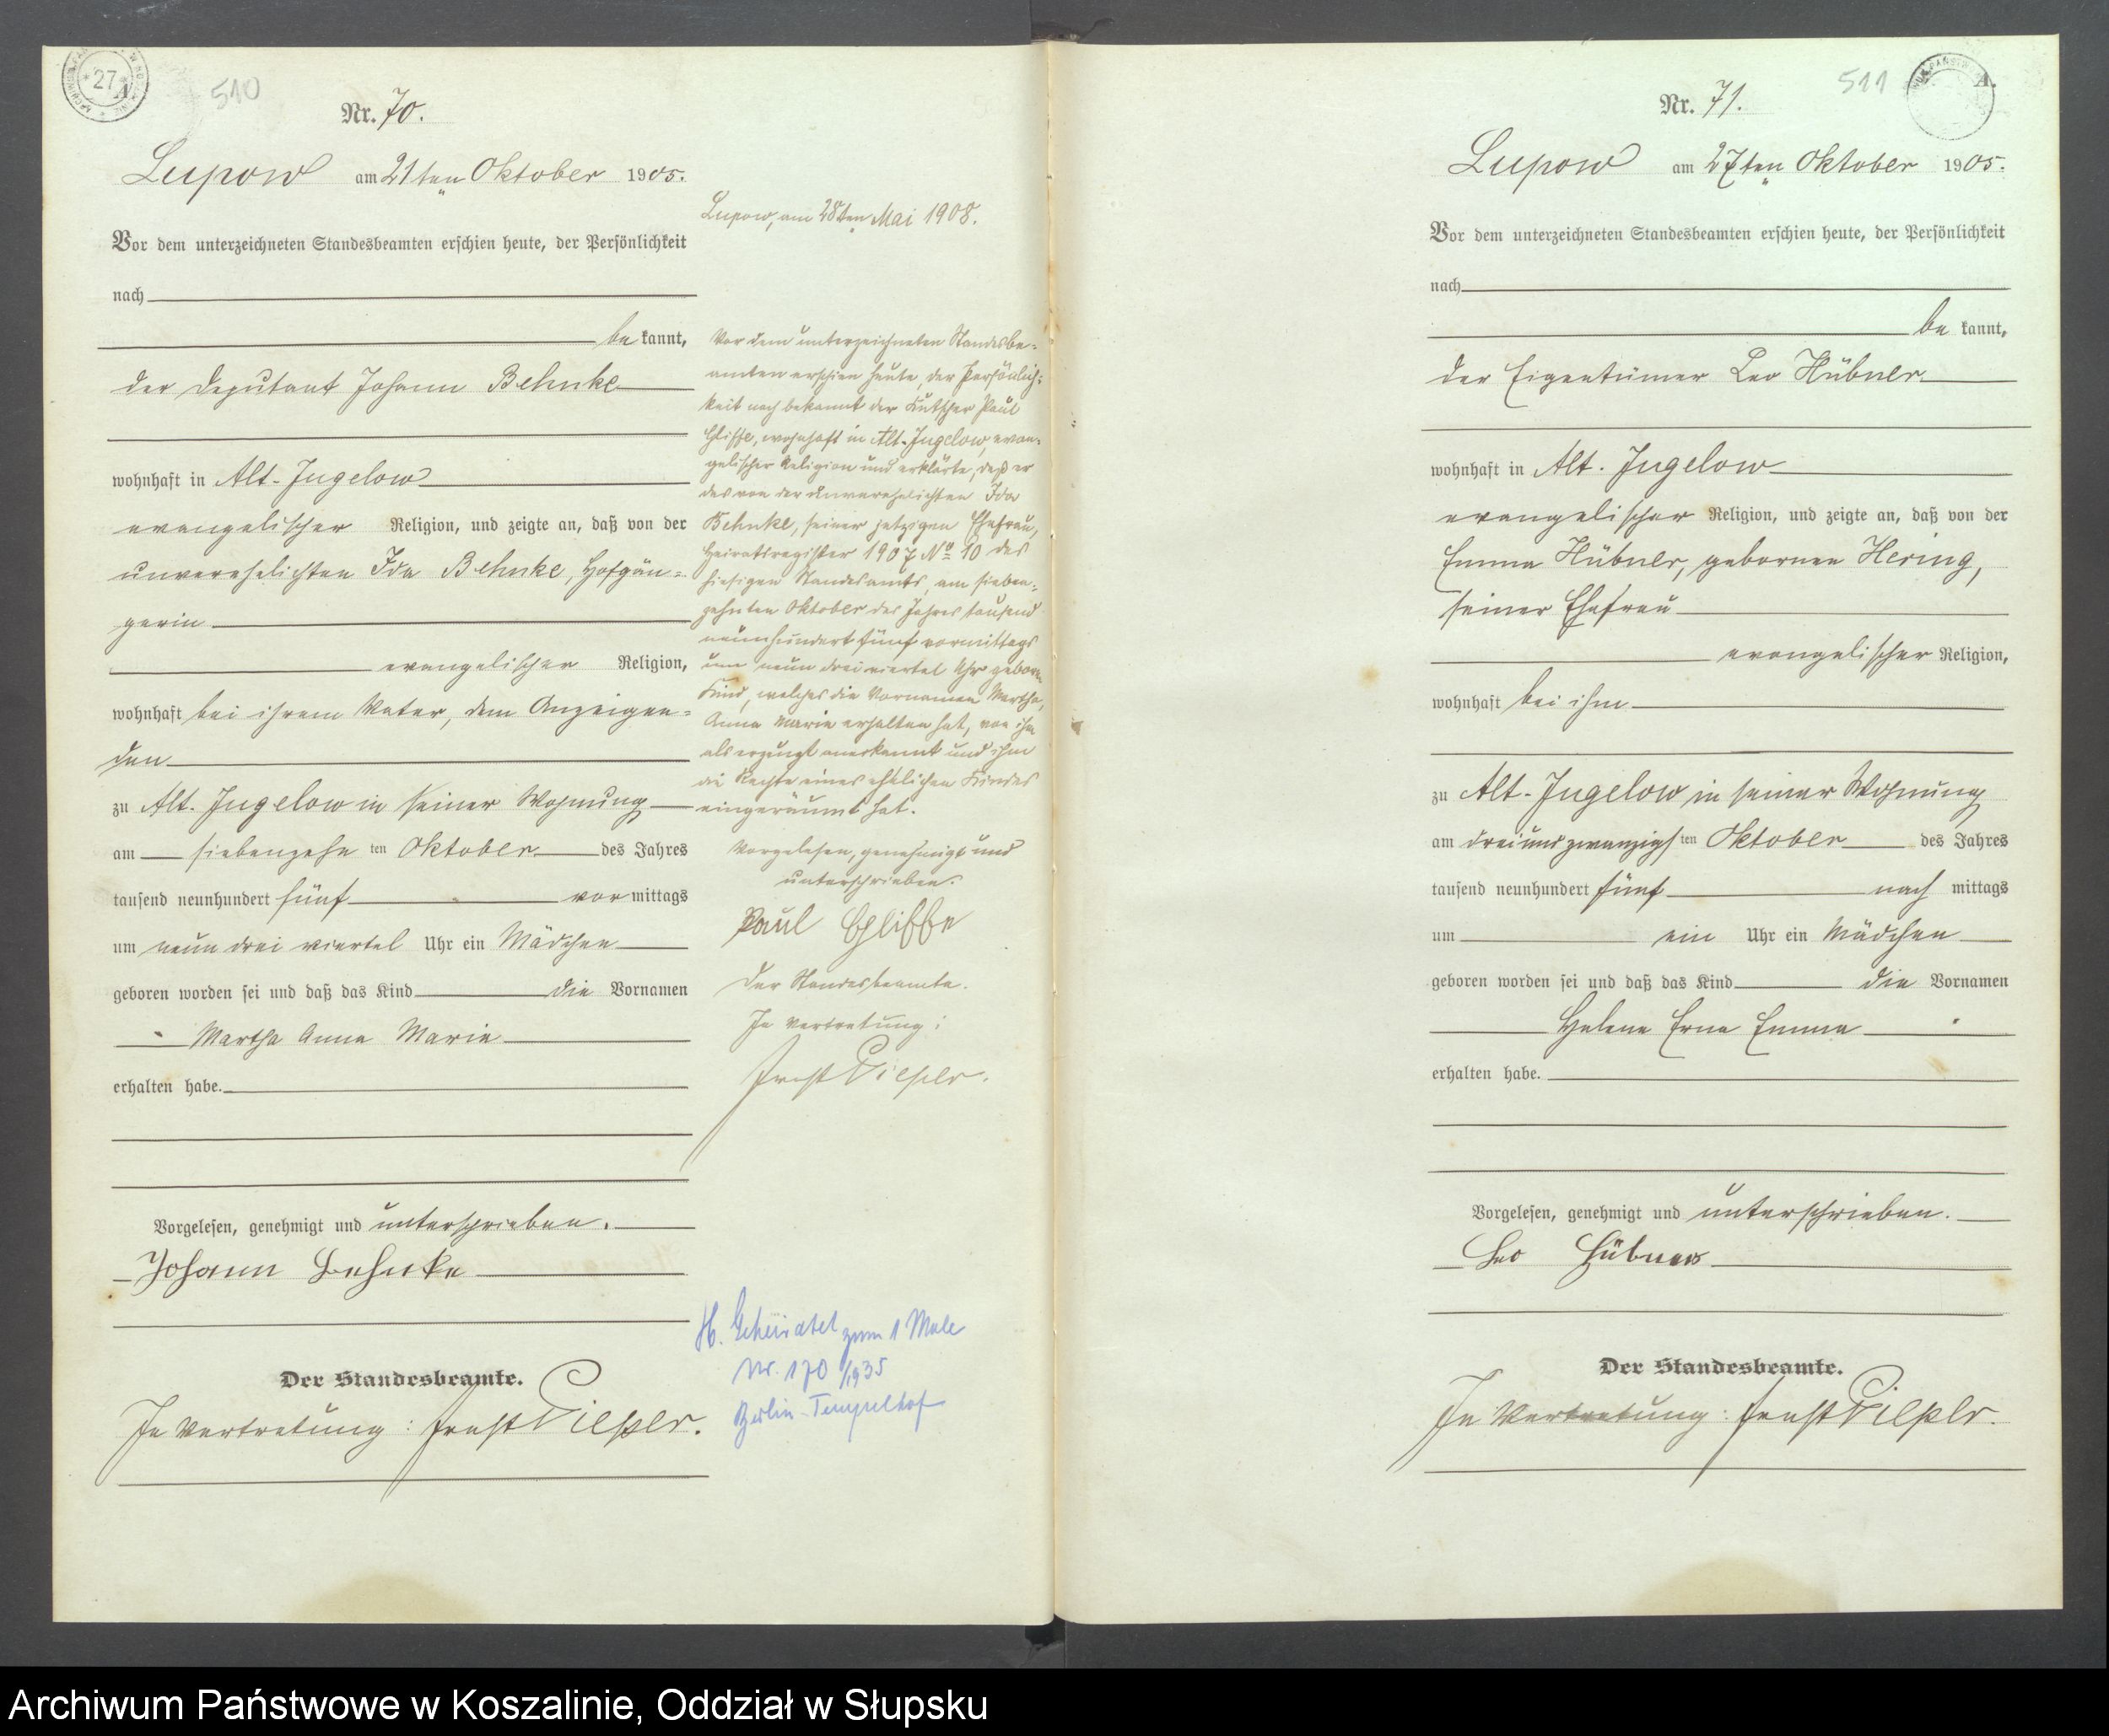 510
Nr. 70.
Lupow am 21ten Oktober 1905.
Vor dem unterzeichneten Standesbeamten erschien heute, der Persönlichkeit
nach
be kannt,
der Deputant Johann Behnke
wohnhaft in Alt-Jugelow
evangelischer Religion, und zeigte an, daß von der
unverehelichten Ida Behnke, Hofgän=
gerin
evangelischer Religion,
wohnhaft bei ihrem Vater, dem Anzeigen=
den
zu Alt-Jugelow in seiner Wohnung
am siebenzehn ten Oktober des Jahres
tausend neunhundert fünf vor mittags
um neun drei viertel Uhr ein Mädchen
geboren worden sei und daß das Kind die Vornamen
Martha Anna Marie
erhalten habe.
Vorgelesen, genehmigt und unterschrieben.
Johann Behnke
Der Standesbeamte.
In Vertretung: Ernst Piepler.
Lupow, am 28ten Mai 1908.
Vor dem unterzeichneten Standesbe=
amten erschien heute, der Persönlich=
keit nach bekannt der Kutscher Paul
Gliffe, wohnhaft in Alt-Jugelow, evan=
gelischer Religion und erklärte, daß er
das von der unverehelichten Ida
Behnke, seiner jetzigen Ehefrau,
Heiratsregister 1907 No 10 des
hiesigen Standesamts, am sieben=
zehnten Oktober des Jahres tausend
neunhundert fünf vormittags
um neun drei viertel Uhr geborene
Kind, welches die Vornamen Martha,
Anna Marie erhalten hat, von ihm
als erzeugt anerkannt und ihm
die Rechte eines ehelichen Kindes
eingeräumt hat.
Vorgelesen, genehmigt und
unterschrieben.
Paul Gliffe
Der Standesbeamte.
In Vertretung:
Ernst Piepler.
H. Geheiratet zum 1 Male
Nr. 170/1935
Berlin-Tempelhof
511
A.
Nr. 71.
Lupow am 27ten Oktober 1905.
Vor dem unterzeichneten Standesbeamten erschien heute, der Persönlichkeit
nach
be kannt,
der Eigentümer Leo Hübner
wohnhaft in Alt-Jugelow
evangelischer Religion, und zeigte an, daß von der
Emma Hübner, gebornen Hering,
seiner Ehefrau
evangelischer Religion,
wohnhaft bei ihm
zu Alt-Jugelow in seiner Wohnung
am dreiundzwanzigs ten Oktober des Jahres
tausend neunhundert fünf nach mittags
um ein Uhr ein Mädchen
geboren worden sei und daß das Kind die Vornamen
Helene Erna Emma
erhalten habe.
Vorgelesen, genehmigt und unterschrieben.
Leo Hübner
Der Standesbeamte.
In Vertretung: Ernst Piepler.
Archiwum Państwowe w Koszalinie, Oddział w Słupsku